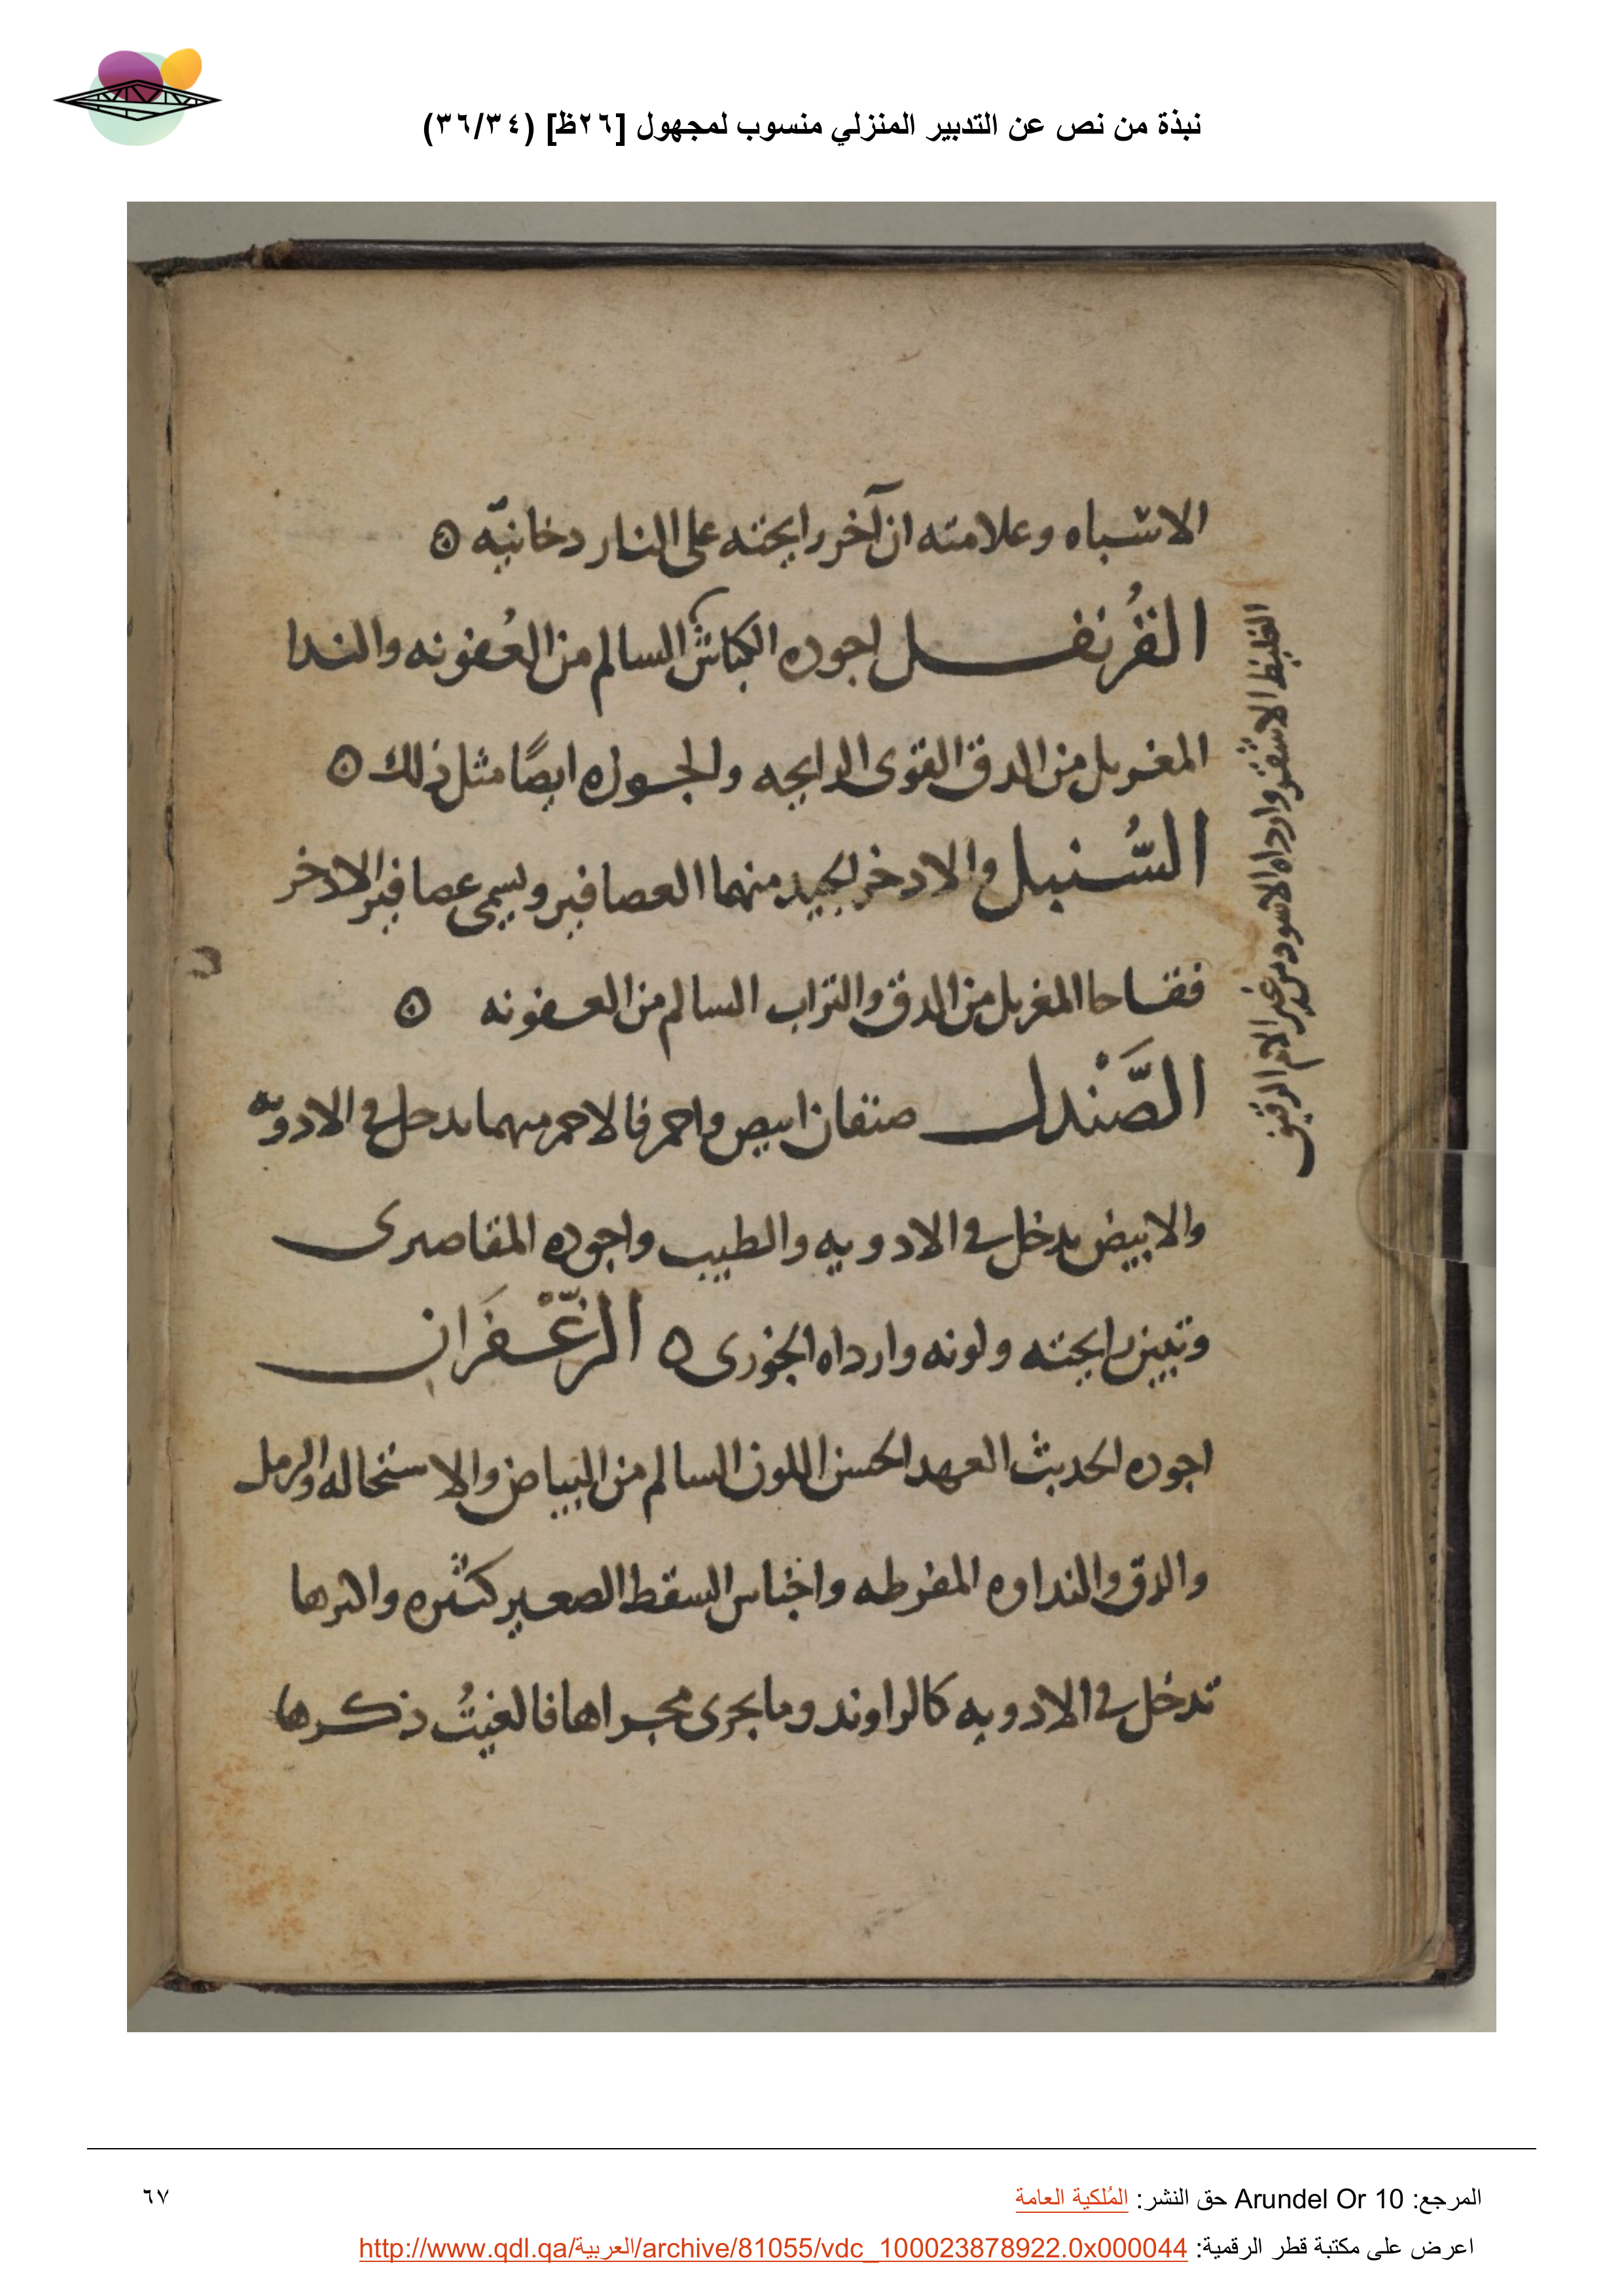 نبذة من نص عن التدبير المنزلي منسوب لمجهول [٢٦ظ] (٣٦/٣٤)
الاشباه وعلامته ان آخر رايحته على النار دخانيّه ه
القُرنفل اجوده الكباش السالم من العُفونه والندا
المغربل من الدق القوى الرايحه والجوزه ايضًا مثل ذلك ه
السُّنبل والادخر الجيد منهما العصافير ويسمى عصافير الادخر
فقاحا المغربل من الدق والتراب السالم من العفونه ه
الصَّنْدل صنفان ابيض واحمر فالاحمر منهما يدخل في الادويّه
والابيض يدخل في الادويه والطيب واجوده المقاصرى
وتبين رايحته ولونه وارداه الجوزى ه الزَّعْفَران
اجوده الحديث العهد الحسن اللون السالم من البياض والاستحاله والرمل
والدق والنداوه المفرطه واجناس السقط الصغير كثيره واكثرها
تدخل في الادويه كالراوند وما يجرى مجراها فالغيتُ ذكرها
الغليظ الاشقر وارداه الاسود من غير الام الرقيق
المرجع: Arundel Or 10 حق النشر: المُلكية العامة
٦٧
اعرض على مكتبة قطر الرقمية: http://www.qdl.qa/العربية/archive/81055/vdc_100023878922.0x000044